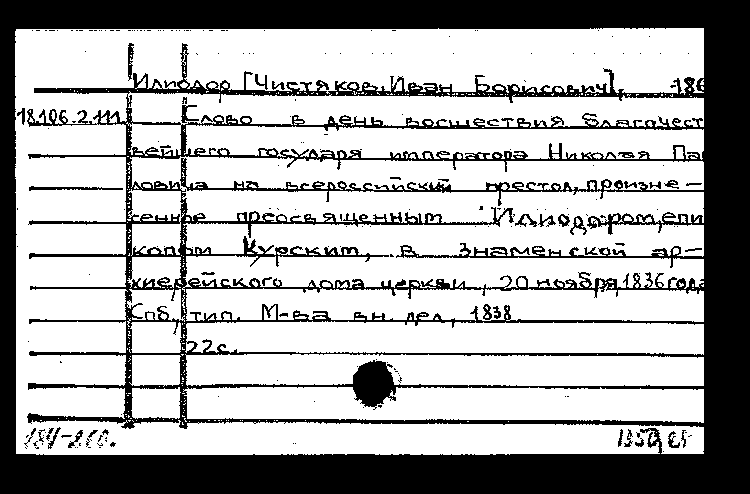 Илиодор [Чистяков, Иван Борисович], -186
18.106.2.111. Слово в день восшествия благочест
вейшего государя императора Николая Па
ловича на всероссийский престол, произне-
сенное преосвященным Илиодором, епи
копом Курским, в Знаменской ар-
хиерейского дома церкви, 20 ноября, 1836 года
Спб, тип. М-ва вн. дел, 1838.
22с.